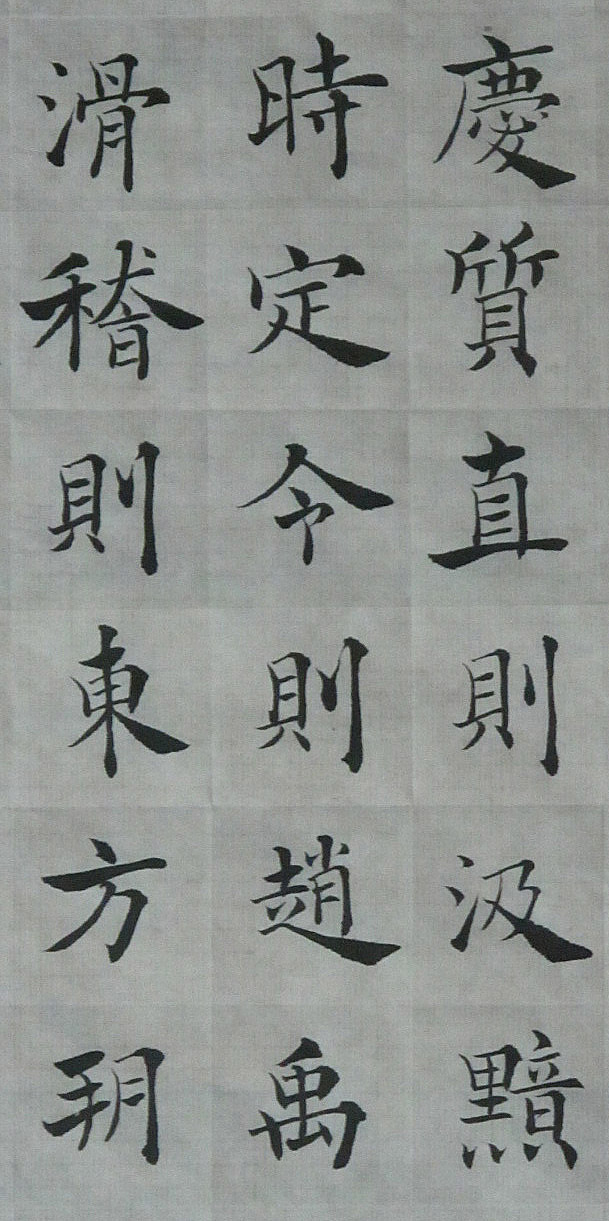 慶質直則汲黯
時定令則趙禹
滑稽則東方朔